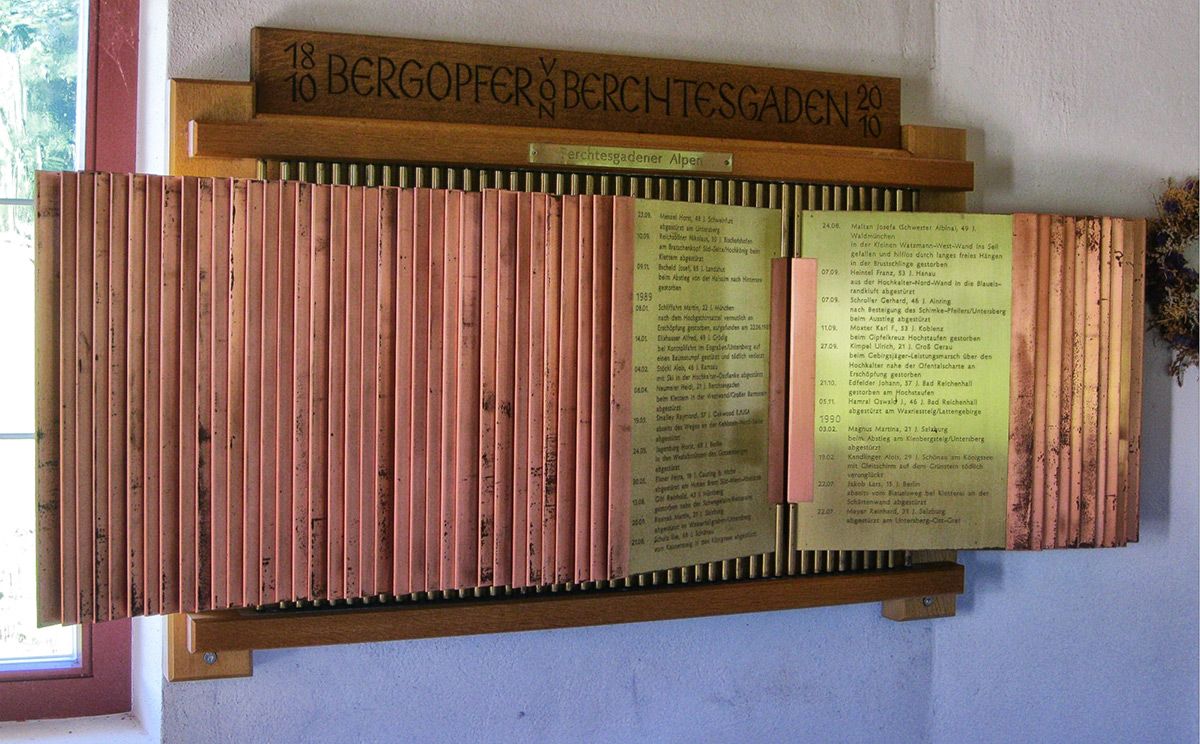 18
10 BERGOPFER VON BERCHTESGADEN 20
10
Berchtesgadener Alpen
23.09. Menzel Horst, 48 J. Schweinfurt
abgestürzt am Untersberg
10.09. Nikolaus, 30 J. Bischofshofen
am Bratschenkopf Süd-Seite/Hochkönig beim
Klettern abgestürzt
09.11. Bscheid Josef, 85 J. Landshut
beim Abstieg von der Halsalm nach Hintersee
gestorben
1989
08.01. Schiffhorn Martin, 22 J. München
nach dem Hochgschirrsattel vermutlich an
Erschöpfung gestorben, aufgefunden am 22.06.1989
14.01. Elkhauser Alfred, 49 J. Grödig
bei Kontrollfahrt im Eisgraben/Untersberg auf
einen Baumstumpf gestürzt und tödlich verletzt
04.02. Stöckl Alois, 48 J. Ramsau
mit Ski in der Hochkalter-Ostflanke abgestürzt
Neumeier Heidi, 21 J. Berchtesgaden
beim Klettern in der Westwand/Großer Barmstein
abgestürzt
19.03. Smalley Raymond, 57 J. Oakwood IL/USA
abseits des Weges an der Kehlstein-Nord-Seite
abgestürzt
24.05. Horst, 49 J. Berlin
abgestürzt
Petra, 19 J.
Reinhold, 43 J. Nürnberg
Martin, 21 J. Salzburg
Schulz Ilse, 68 J. Schönau
24.08. Maltan Josefa (Schwester Albina), 49 J.
Waldmünchen
in der Kleinen Watzmann-West-Wand ins Seil
gefallen und hilflos durch langes freies Hängen
in der Brustschlinge gestorben
07.09. Heintel Franz, 53 J. Hanau
aus der Hochkalter-Nord-Wand in die Blaueis-
randkluft abgestürzt
07.09. Schroller Gerhard, 46 J. Ainring
nach Besteigung des Schimke-Pfeilers/Untersberg
beim Ausstieg abgestürzt
11.09. Moxter Karl F., 53 J. Koblenz
beim Gipfelkreuz Hochstaufen gestorben
27.09. Kimpel Ulrich, 21 J. Groß Gerau
beim Gebirgsjäger-Leistungsmarsch über den
Hochkalter nahe der Ofentalscharte an
Erschöpfung gestorben
21.10. Edfelder Johann, 57 J. Bad Reichenhall
gestorben am Hochstaufen
05.11. Hamral Oswald J., 46 J. Bad Reichenhall
abgestürzt am Waxriessteig/Lattengebirge
1990
03.02. Magnus Martina, 21 J. Salzburg
beim Abstieg am Kienbergsteig/Untersberg
abgestürzt
19.02. Kandlinger Alois, 29 J. Schönau am Königssee
mit Gleitschirm auf dem Grünstein tödlich
verunglückt
22.07. Jakob Lars, 15 J. Berlin
abseits vom Blaueisweg bei Kletterei an der
Schärtenwand abgestürzt
22.07. Meyer Reinhard, 21 J. Salzburg
abgestürzt am Untersberg-Ost-Grat